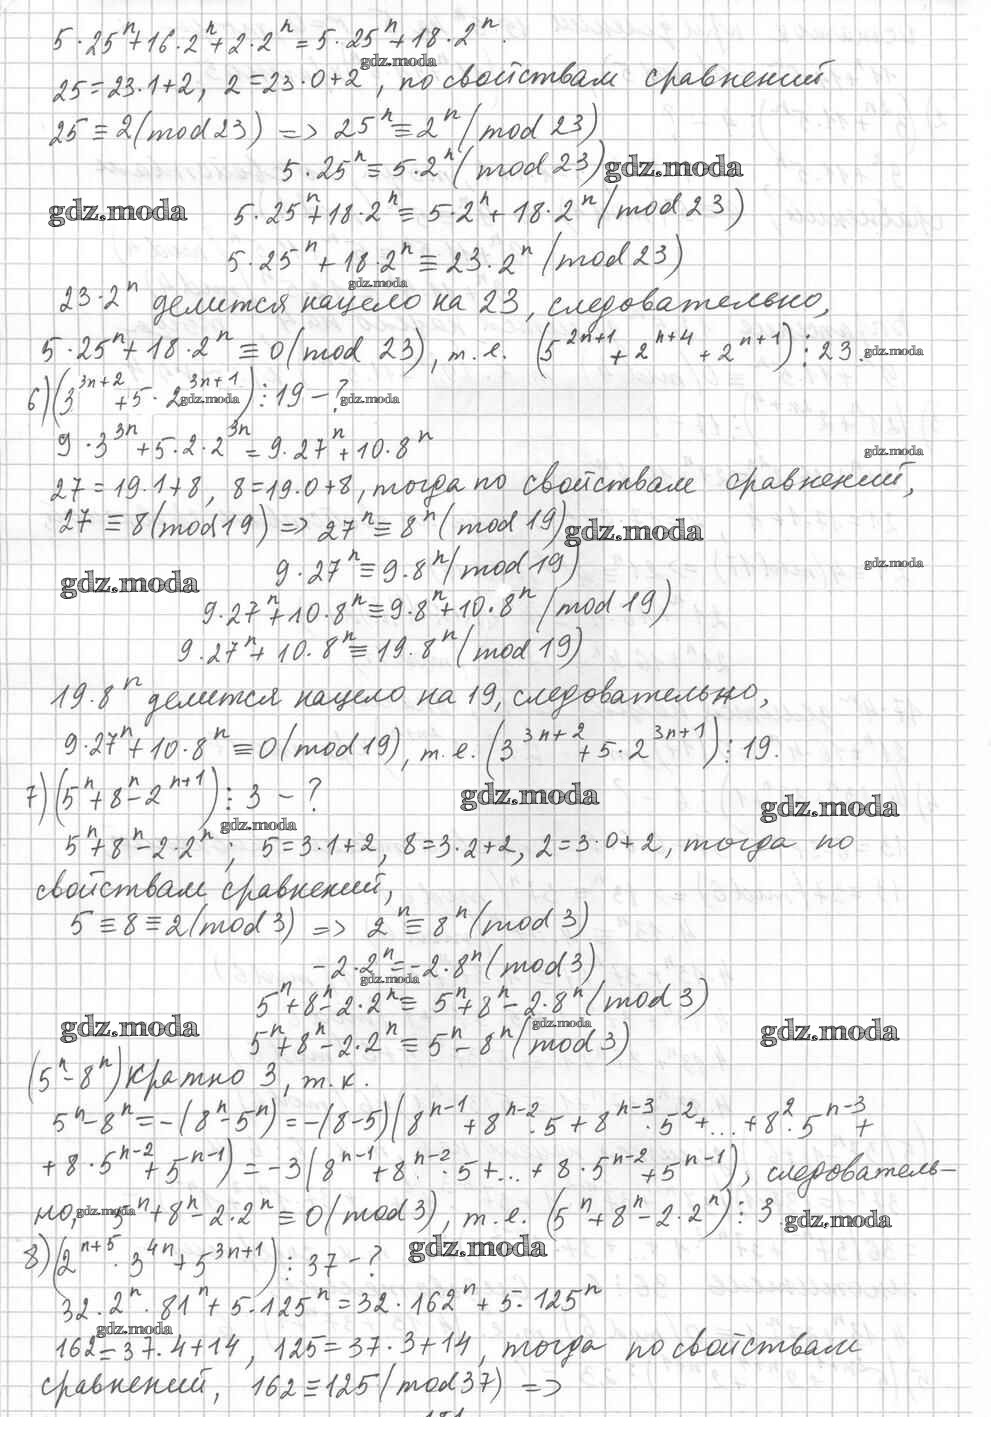 5·25ⁿ+16·2ⁿ+2·2ⁿ=5·25ⁿ+18·2ⁿ.
gdz.moda
25=23·1+2, 2=23·0+2, по свойствам сравнений
25≡2(mod 23) => 25ⁿ≡2ⁿ(mod 23)
5·25ⁿ≡5·2ⁿ(mod 23) gdz.moda
gdz.moda 5·25ⁿ+18·2ⁿ≡5·2ⁿ+18·2ⁿ(mod 23)
5·25ⁿ+18·2ⁿ≡23·2ⁿ(mod 23)
gdz.moda
23·2ⁿ делится нацело на 23, следовательно,
5·25ⁿ+18·2ⁿ≡0(mod 23), т.е. (5²ⁿ⁺¹+2ⁿ⁺⁴+2ⁿ⁺¹)⋮23. gdz.moda
6)(3³ⁿ⁺²+5·2³ⁿ⁺¹)⋮19-? gdz.moda gdz.moda
9·3³ⁿ+5·2·2³ⁿ=9·27ⁿ+10·8ⁿ gdz.moda
27=19·1+8, 8=19·0+8, тогда по свойствам сравнений,
27≡8(mod 19) => 27ⁿ≡8ⁿ(mod 19) gdz.moda
gdz.moda 9·27ⁿ≡9·8ⁿ(mod 19) gdz.moda
9·27ⁿ+10·8ⁿ≡9·8ⁿ+10·8ⁿ(mod 19)
9·27ⁿ+10·8ⁿ≡19·8ⁿ(mod 19)
19·8ⁿ делится нацело на 19, следовательно,
9·27ⁿ+10·8ⁿ≡0(mod 19), т.е. (3³ⁿ⁺²+5·2³ⁿ⁺¹)⋮19.
7)(5ⁿ+8ⁿ-2ⁿ⁺¹)⋮3-? gdz.moda gdz.moda
gdz.moda
5ⁿ+8ⁿ-2·2ⁿ; 5=3·1+2, 8=3·2+2, 2=3·0+2, тогда по
свойствам сравнений,
5≡8≡2(mod 3) => 2ⁿ≡8ⁿ(mod 3)
-2·2ⁿ≡-2·8ⁿ(mod 3)
gdz.moda
5ⁿ+8ⁿ-2·2ⁿ≡5ⁿ+8ⁿ-2·8ⁿ(mod 3)
gdz.moda gdz.moda gdz.moda
5ⁿ+8ⁿ-2·2ⁿ≡5ⁿ-8ⁿ(mod 3)
(5ⁿ-8ⁿ) кратно 3, т.к.
5ⁿ-8ⁿ=-(8ⁿ-5ⁿ)=-(8-5)(8ⁿ⁻¹+8ⁿ⁻²·5+8ⁿ⁻³·5²+...+8²·5ⁿ⁻³+
+8·5ⁿ⁻²+5ⁿ⁻¹)=-3(8ⁿ⁻¹+8ⁿ⁻²·5+...+8·5ⁿ⁻²+5ⁿ⁻¹), следователь-
но, gdz.moda 5ⁿ+8ⁿ-2·2ⁿ≡0(mod 3), т.е. (5ⁿ+8ⁿ-2·2ⁿ)⋮3 gdz.moda
8)(2ⁿ⁺⁵·3⁴ⁿ+5³ⁿ⁺¹)⋮37-? gdz.moda
32·2ⁿ·81ⁿ+5·125ⁿ=32·162ⁿ+5·125ⁿ
gdz.moda
162=37·4+14, 125=37·3+14, тогда по свойствам
сравнений, 162≡125(mod 37) =>